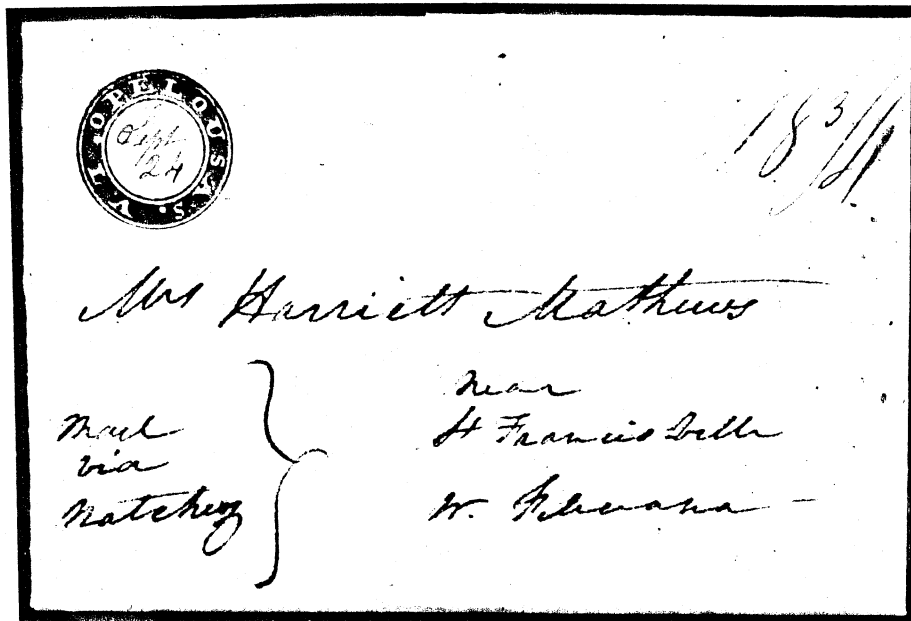 OPELOUSAS. V.L
Sept
24
18 3/4
Mrs Harriett Mathews
Mail
via
Natchez
near
St Francis Ville
W.